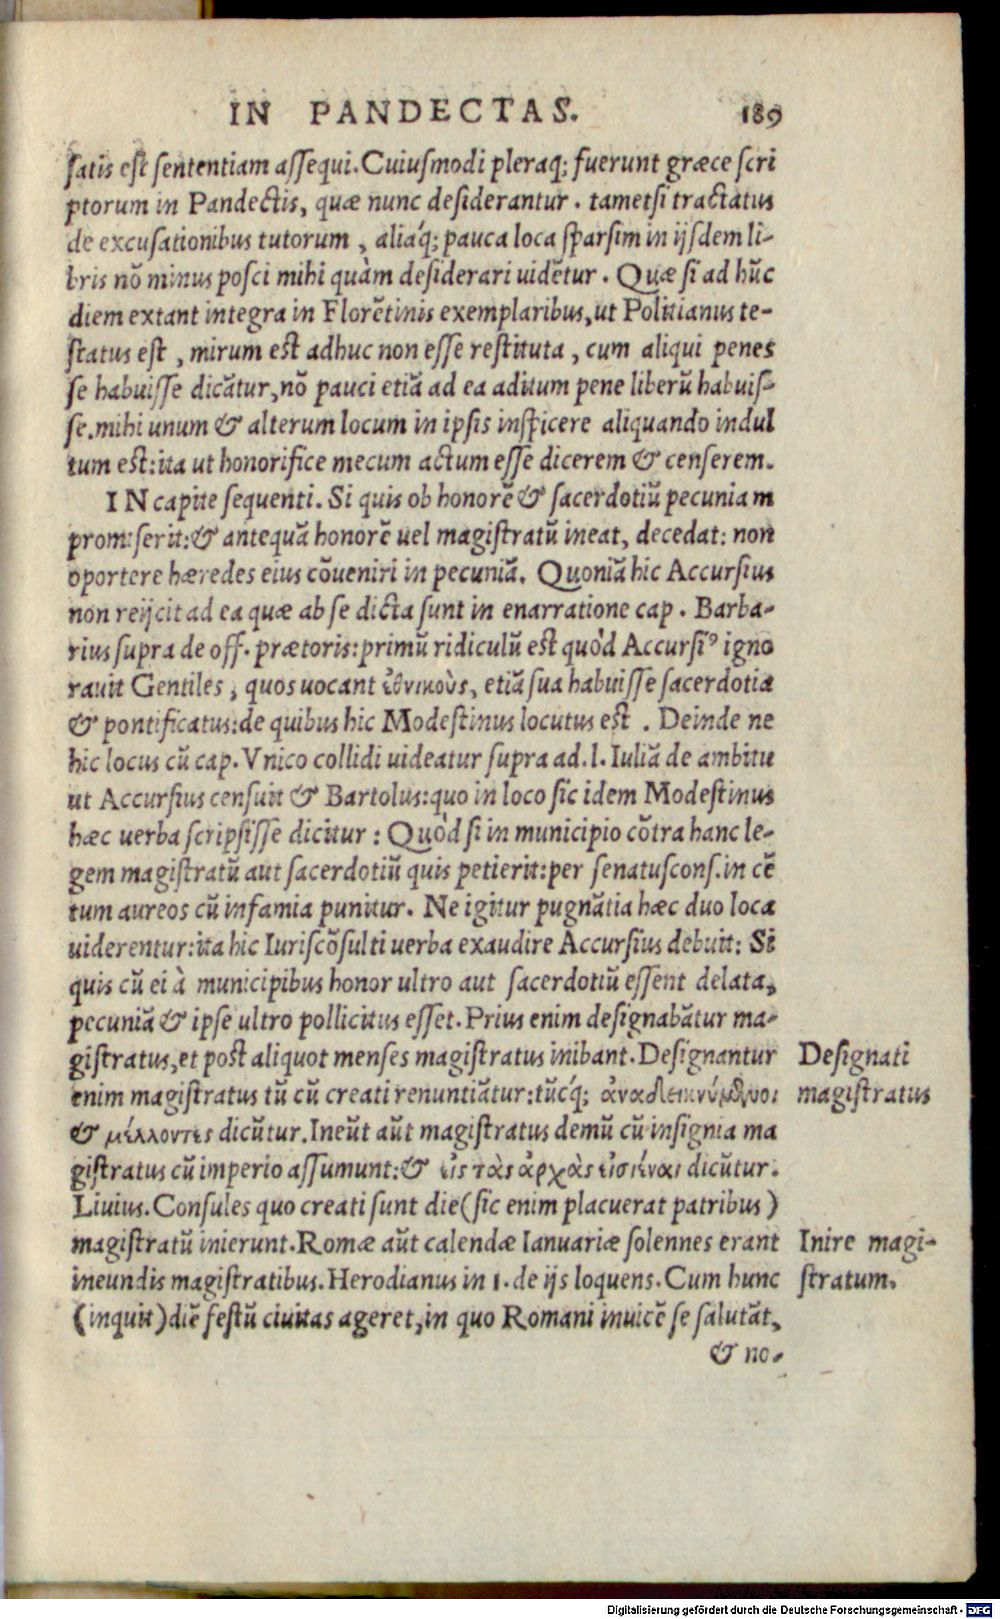 IN PANDECTAS. 189
satis est sententiam assequi. Cuiusmodi pleraq; fuerunt græce scri
ptorum in Pandectis, quæ nunc desiderantur. tametsi tractatus
de excusationibus tutorum, aliáq; pauca loca sparsim in ijsdem li-
bris nõ minus posci mihi quàm desiderari uidẽtur. Quæ si ad hũc
diem extant integra in Florẽtinis exemplaribus, ut Politianus te-
status est, mirum est adhuc non esse restituta, cum aliqui penes
se habuisse dicãtur, nõ pauci etiã ad ea aditum pene liberũ habuis-
se. mihi unum & alterum locum in ipsis inspicere aliquando indul
tum est: ita ut honorifice mecum actum esse dicerem & censerem.
IN capite sequenti. Si quis ob honorẽ & sacerdotiũ pecuniam
promiserit: & antequã honorẽ uel magistratũ ineat, decedat: non
oportere hæredes eius cõueniri in pecuniã. Quoniã hic Accursius
non reijcit ad ea quæ ab se dicta sunt in enarratione cap. Barba-
rius supra de off. prætoris: primũ ridiculũ est quòd Accursiꝰ igno
rauit Gentiles, quos uocant ἐθνικοὺς, etiã sua habuisse sacerdotia
& pontificatus: de quibus hic Modestinus locutus est. Deinde ne
hic locus cũ cap. Vnico collidi uideatur supra ad. l. Iuliã de ambitu
ut Accursius censuit & Bartolus: quo in loco sic idem Modestinus
hæc uerba scripsisse dicitur: Quòd si in municipio cõtra hanc le-
gem magistratũ aut sacerdotiũ quis petierit: per senatuscons. in cẽ
tum aureos cũ infamia punitur. Ne igitur pugnãtia hæc duo loca
uiderentur: ita hic Iuriscõsulti uerba exaudire Accursius debuit: Si
quis cũ ei à municipibus honor ultro aut sacerdotiũ essent delata,
pecuniã & ipse ultro pollicitus esset. Prius enim designabãtur ma-
gistratus, et post aliquot menses magistratus inibant. Designantur
enim magistratus tũ cũ creati renuntiãtur: tũcq́; ἀναδεικνύμενοι
& μέλλοντες dicũtur. Ineũt aũt magistratus demũ cũ insignia ma
gistratus cũ imperio assumunt: & εἰς τὰς ἀρχὰς εἰσιέναι dicũtur.
Liuius. Consules quo creati sunt die (sic enim placuerat patribus)
magistratũ inierunt. Romæ aũt calendæ Ianuariæ solennes erant
ineundis magistratibus. Herodianus in 1. de ijs loquens. Cum hunc
(inquit) diẽ festũ ciuitas ageret, in quo Romani inuicẽ se salutãt,
& no-
Designati
magistratus
Inire magi-
stratum.
Digitalisierung gefördert durch die Deutsche Forschungsgemeinschaft - DFG